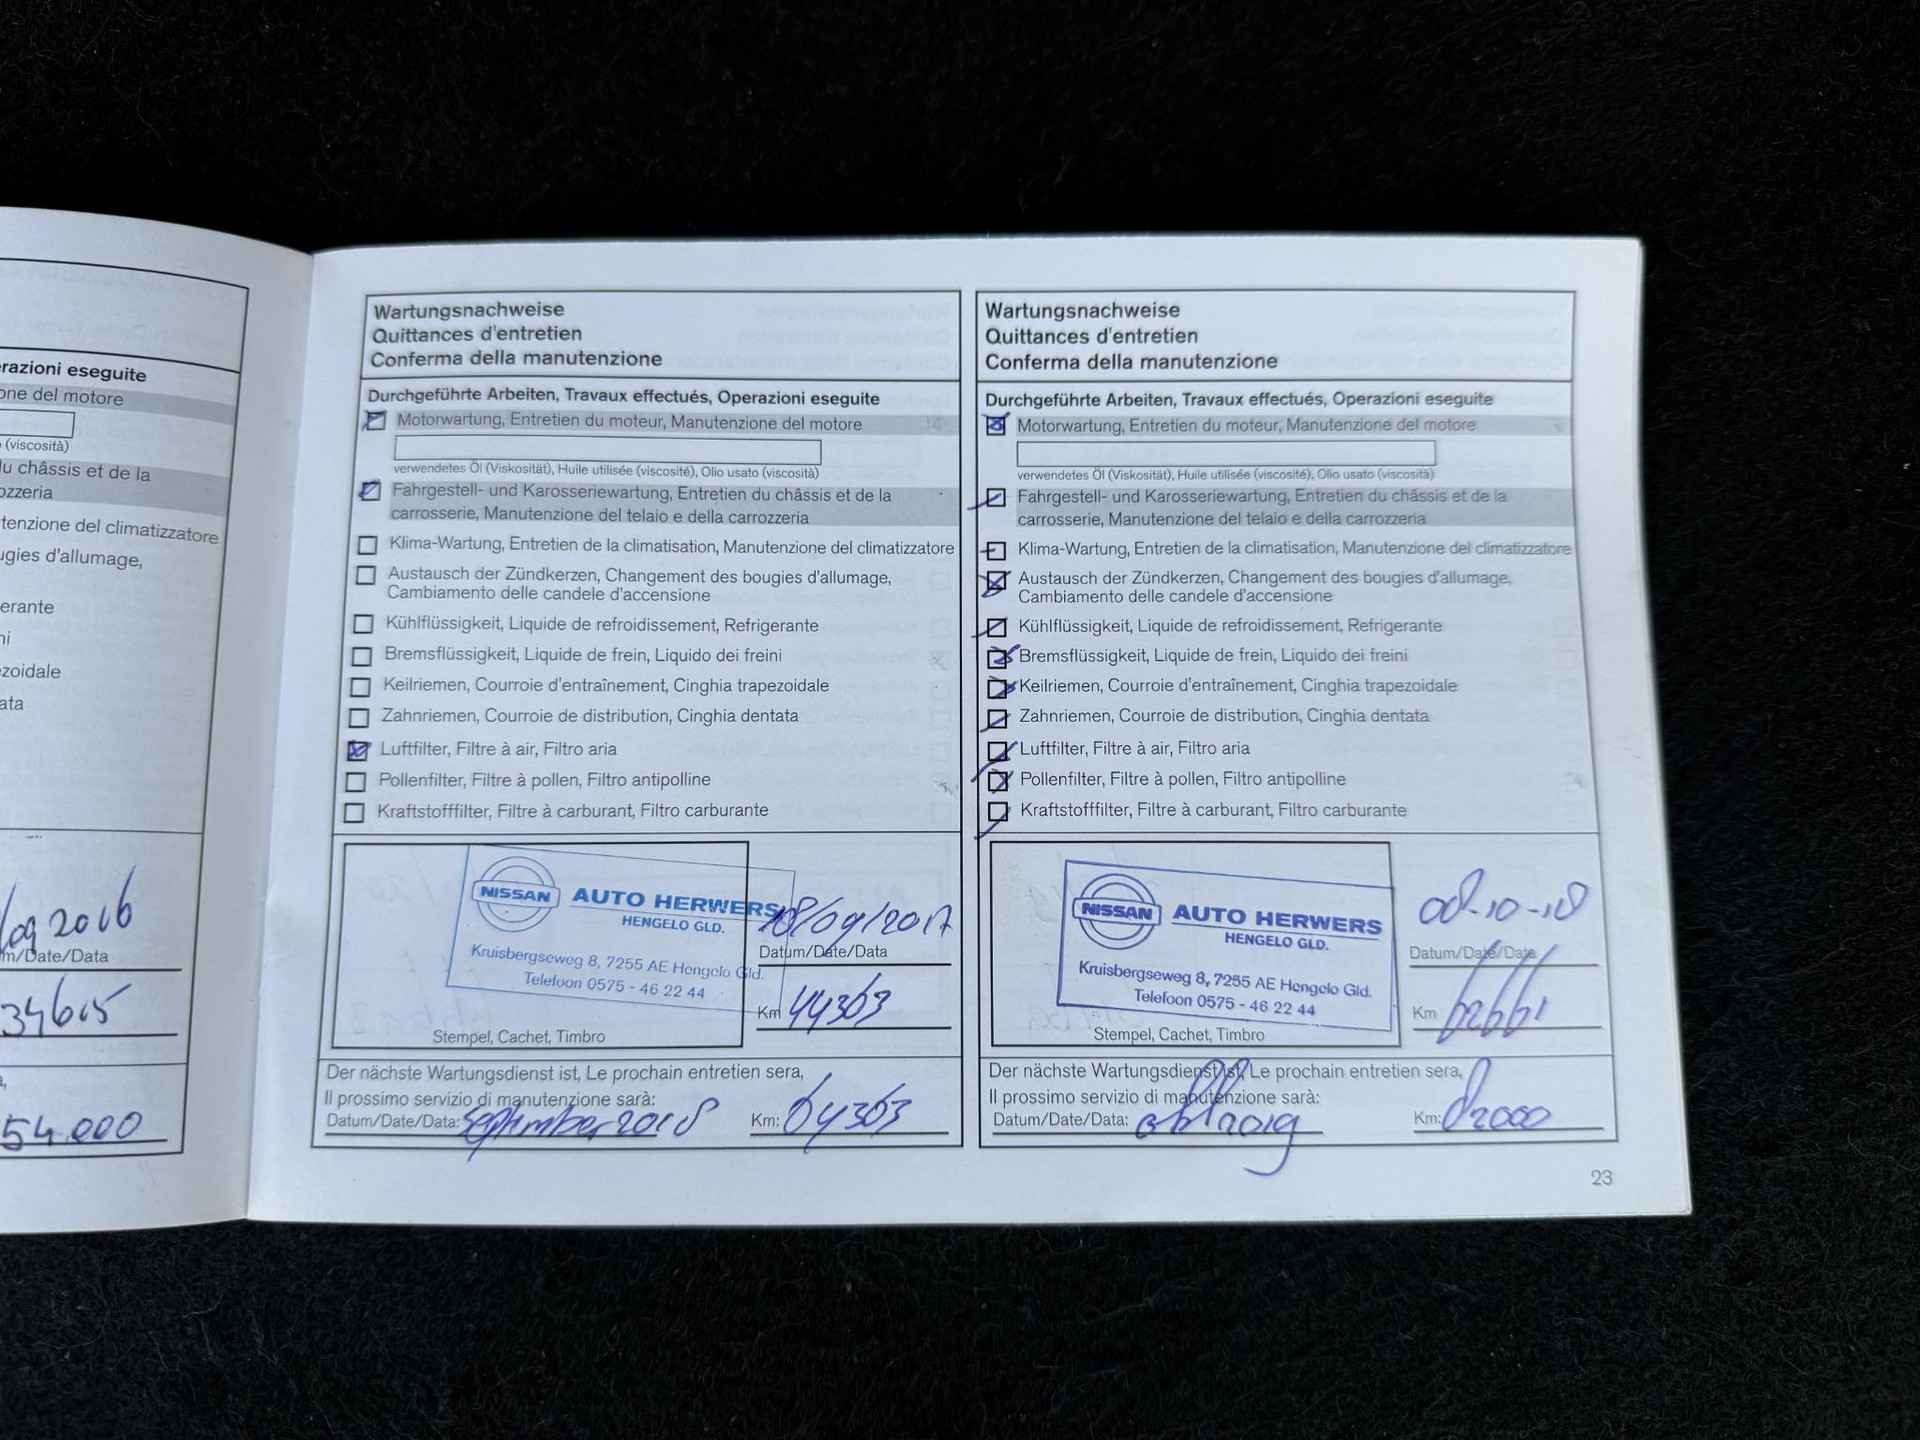 razioni eseguite
one del motore
(viscosità)
u châssis et de la
ozzeria
tenzione del climatizzatore
ugies d'allumage,
erante
ni
zoidale
ata
/09 2016
m/Date/Data
34615
54.000
Wartungsnachweise
Quittances d'entretien
Conferma della manutenzione
Durchgeführte Arbeiten, Travaux effectués, Operazioni eseguite
Motorwartung, Entretien du moteur, Manutenzione del motore
verwendetes Öl (Viskosität), Huile utilisée (viscosité), Olio usato (viscosità)
Fahrgestell- und Karosseriewartung, Entretien du châssis et de la
carrosserie, Manutenzione del telaio e della carrozzeria
Klima-Wartung, Entretien de la climatisation, Manutenzione del climatizzatore
Austausch der Zündkerzen, Changement des bougies d'allumage,
Cambiamento delle candele d'accensione
Kühlflüssigkeit, Liquide de refroidissement, Refrigerante
Bremsflüssigkeit, Liquide de frein, Liquido dei freini
Keilriemen, Courroie d'entraînement, Cinghia trapezoidale
Zahnriemen, Courroie de distribution, Cinghia dentata
Luftfilter, Filtre à air, Filtro aria
Pollenfilter, Filtre à pollen, Filtro antipolline
Kraftstofffilter, Filtre à carburant, Filtro carburante
NISSAN AUTO HERWERS
HENGELO GLD.
Kruisbergseweg 8, 7255 AE Hengelo Gld.
Telefoon 0575 - 46 22 44
Stempel, Cachet, Timbro
18/09/2017
Datum/Date/Data
Km 44363
Der nächste Wartungsdienst ist, Le prochain entretien sera,
Il prossimo servizio di manutenzione sarà:
Datum/Date/Data: september 2018 Km: 64363
Wartungsnachweise
Quittances d'entretien
Conferma della manutenzione
Durchgeführte Arbeiten, Travaux effectués, Operazioni eseguite
Motorwartung, Entretien du moteur, Manutenzione del motore
verwendetes Öl (Viskosität), Huile utilisée (viscosité), Olio usato (viscosità)
Fahrgestell- und Karosseriewartung, Entretien du châssis et de la
carrosserie, Manutenzione del telaio e della carrozzeria
Klima-Wartung, Entretien de la climatisation, Manutenzione del climatizzatore
Austausch der Zündkerzen, Changement des bougies d'allumage,
Cambiamento delle candele d'accensione
Kühlflüssigkeit, Liquide de refroidissement, Refrigerante
Bremsflüssigkeit, Liquide de frein, Liquido dei freini
Keilriemen, Courroie d'entraînement, Cinghia trapezoidale
Zahnriemen, Courroie de distribution, Cinghia dentata
Luftfilter, Filtre à air, Filtro aria
Pollenfilter, Filtre à pollen, Filtro antipolline
Kraftstofffilter, Filtre à carburant, Filtro carburante
NISSAN AUTO HERWERS
HENGELO GLD.
Kruisbergseweg 8, 7255 AE Hengelo Gld.
Telefoon 0575 - 46 22 44
Stempel, Cachet, Timbro
08-10-18
Datum/Date/Data
Km 62661
Der nächste Wartungsdienst ist, Le prochain entretien sera,
Il prossimo servizio di manutenzione sarà:
Datum/Date/Data: 2019 Km: 82000
23